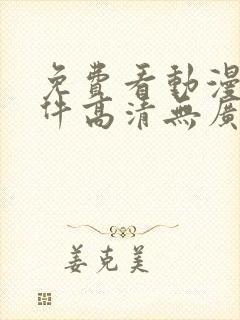 免費看動漫
件高清無廣
姜克美